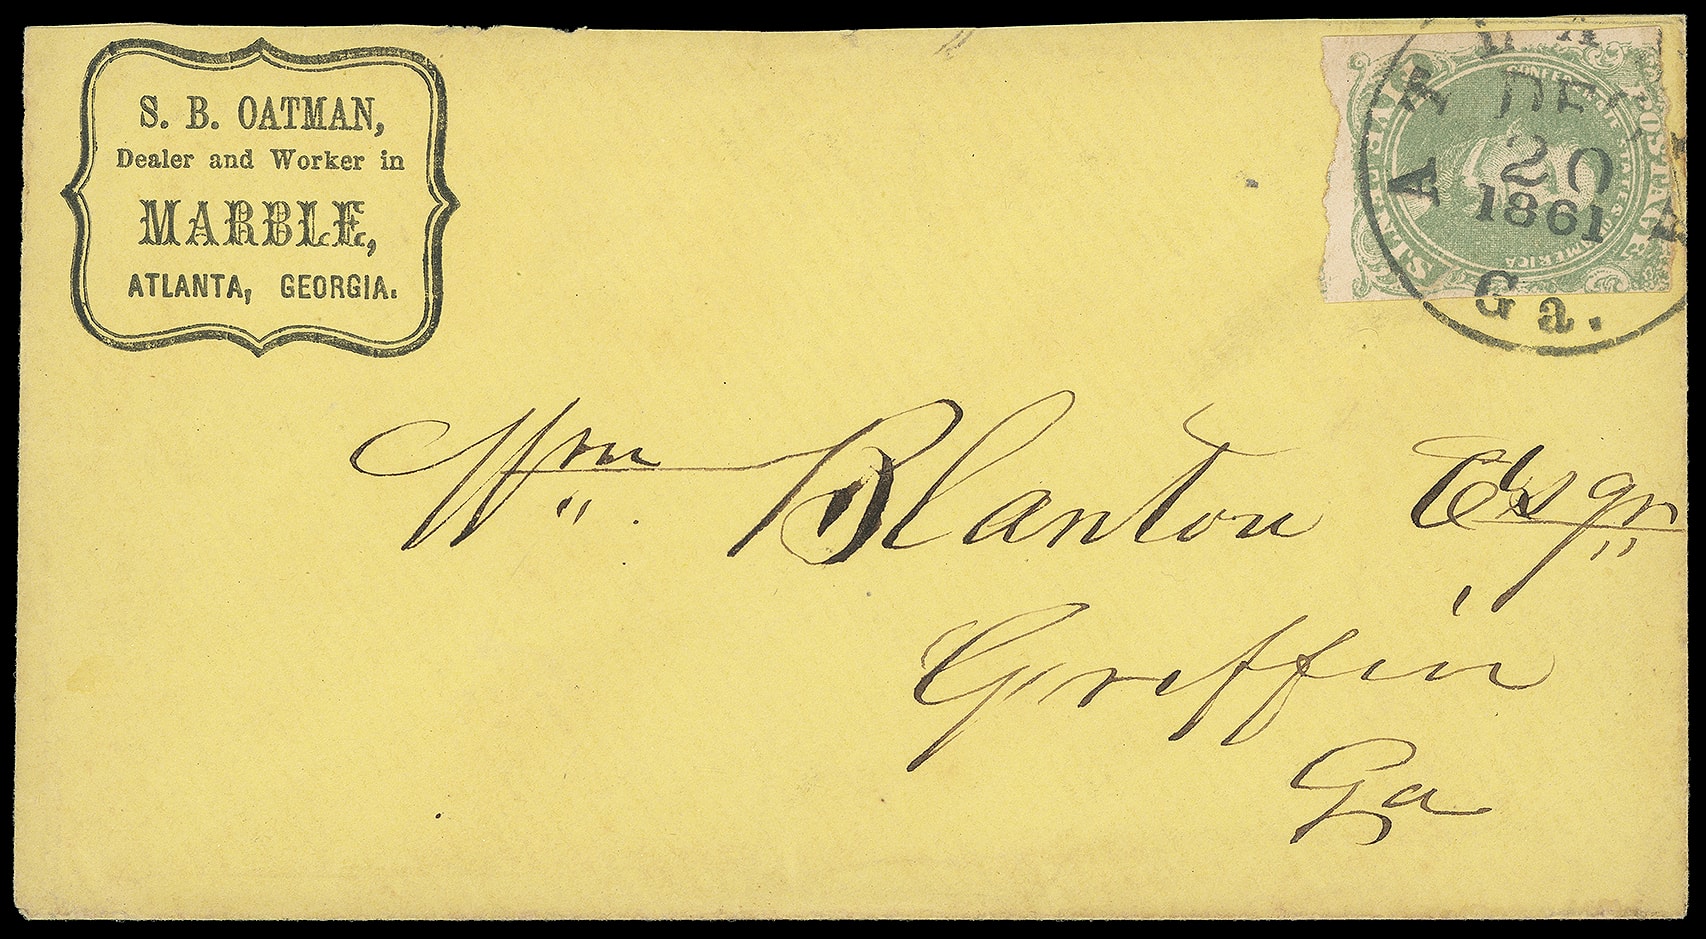 S. B. OATMAN,
Dealer and Worker in
MARBLE,
ATLANTA, GEORGIA.
CONFEDERATE STATES OF AMERICA
POSTAGE
20
1861
Ga.
Wm Blanton Esqr
Griffin
Ga